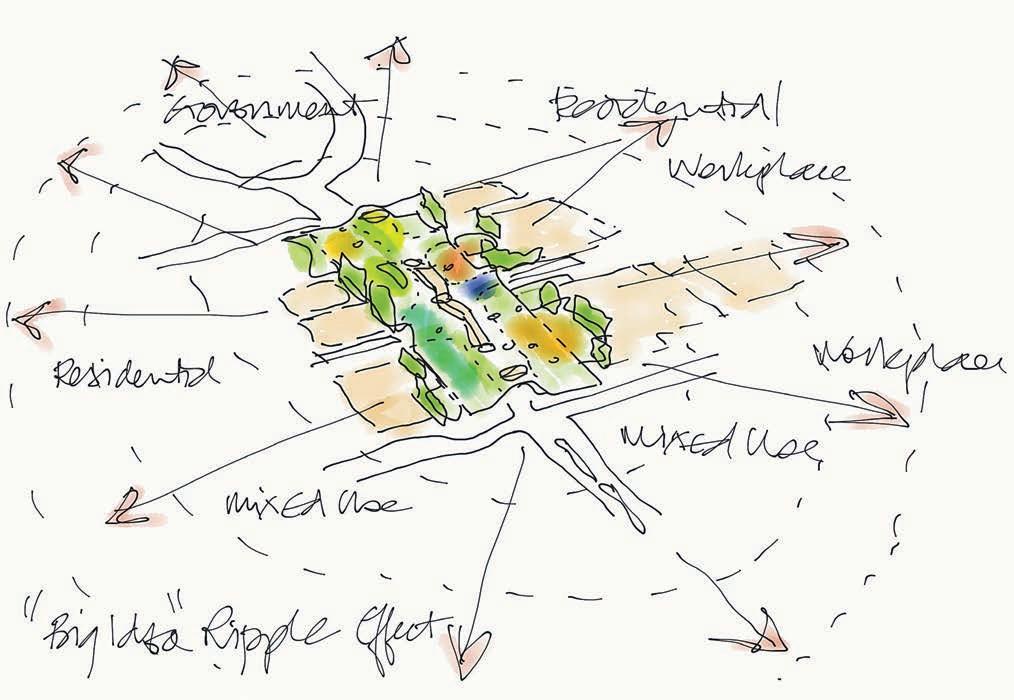 Government
Workplace
Residential
Workplace
Mixed Use
Mixed Use
"Big Idea" Ripple Effect